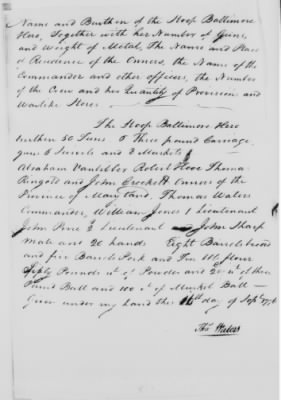 Name and Burthen of the Sloop Baltimore
Hero, Together with her Number of Guns,
and Weight of Metal, The Name and Place
of Residence of the Owners, the Name of the
Commander and other officers, the Number
of the Crew and her Quantity of Provision and
Warlike Stores
The Sloop Baltimore Hero
burthen 50 Tuns 6 Three pound Carriage
guns 6 Swivels and 8 Muskets
Abraham Vanbibber Robert Thomas
Ringold and John Crockett Owners of the
Province of Maryland, Thomas Waters
Commander, William Jones 1 Lieutenant
John 2 Lieutenant John Sharp
Mate and 20 hands Eight Barrels bread
and five Barrels Pork and Ten flour
Fifty Pounds wt of Powder and wt of three
Pound Ball and 100 wt of Musket Ball
Given under my hand this 16th day of Sept 1776
Thos Waters